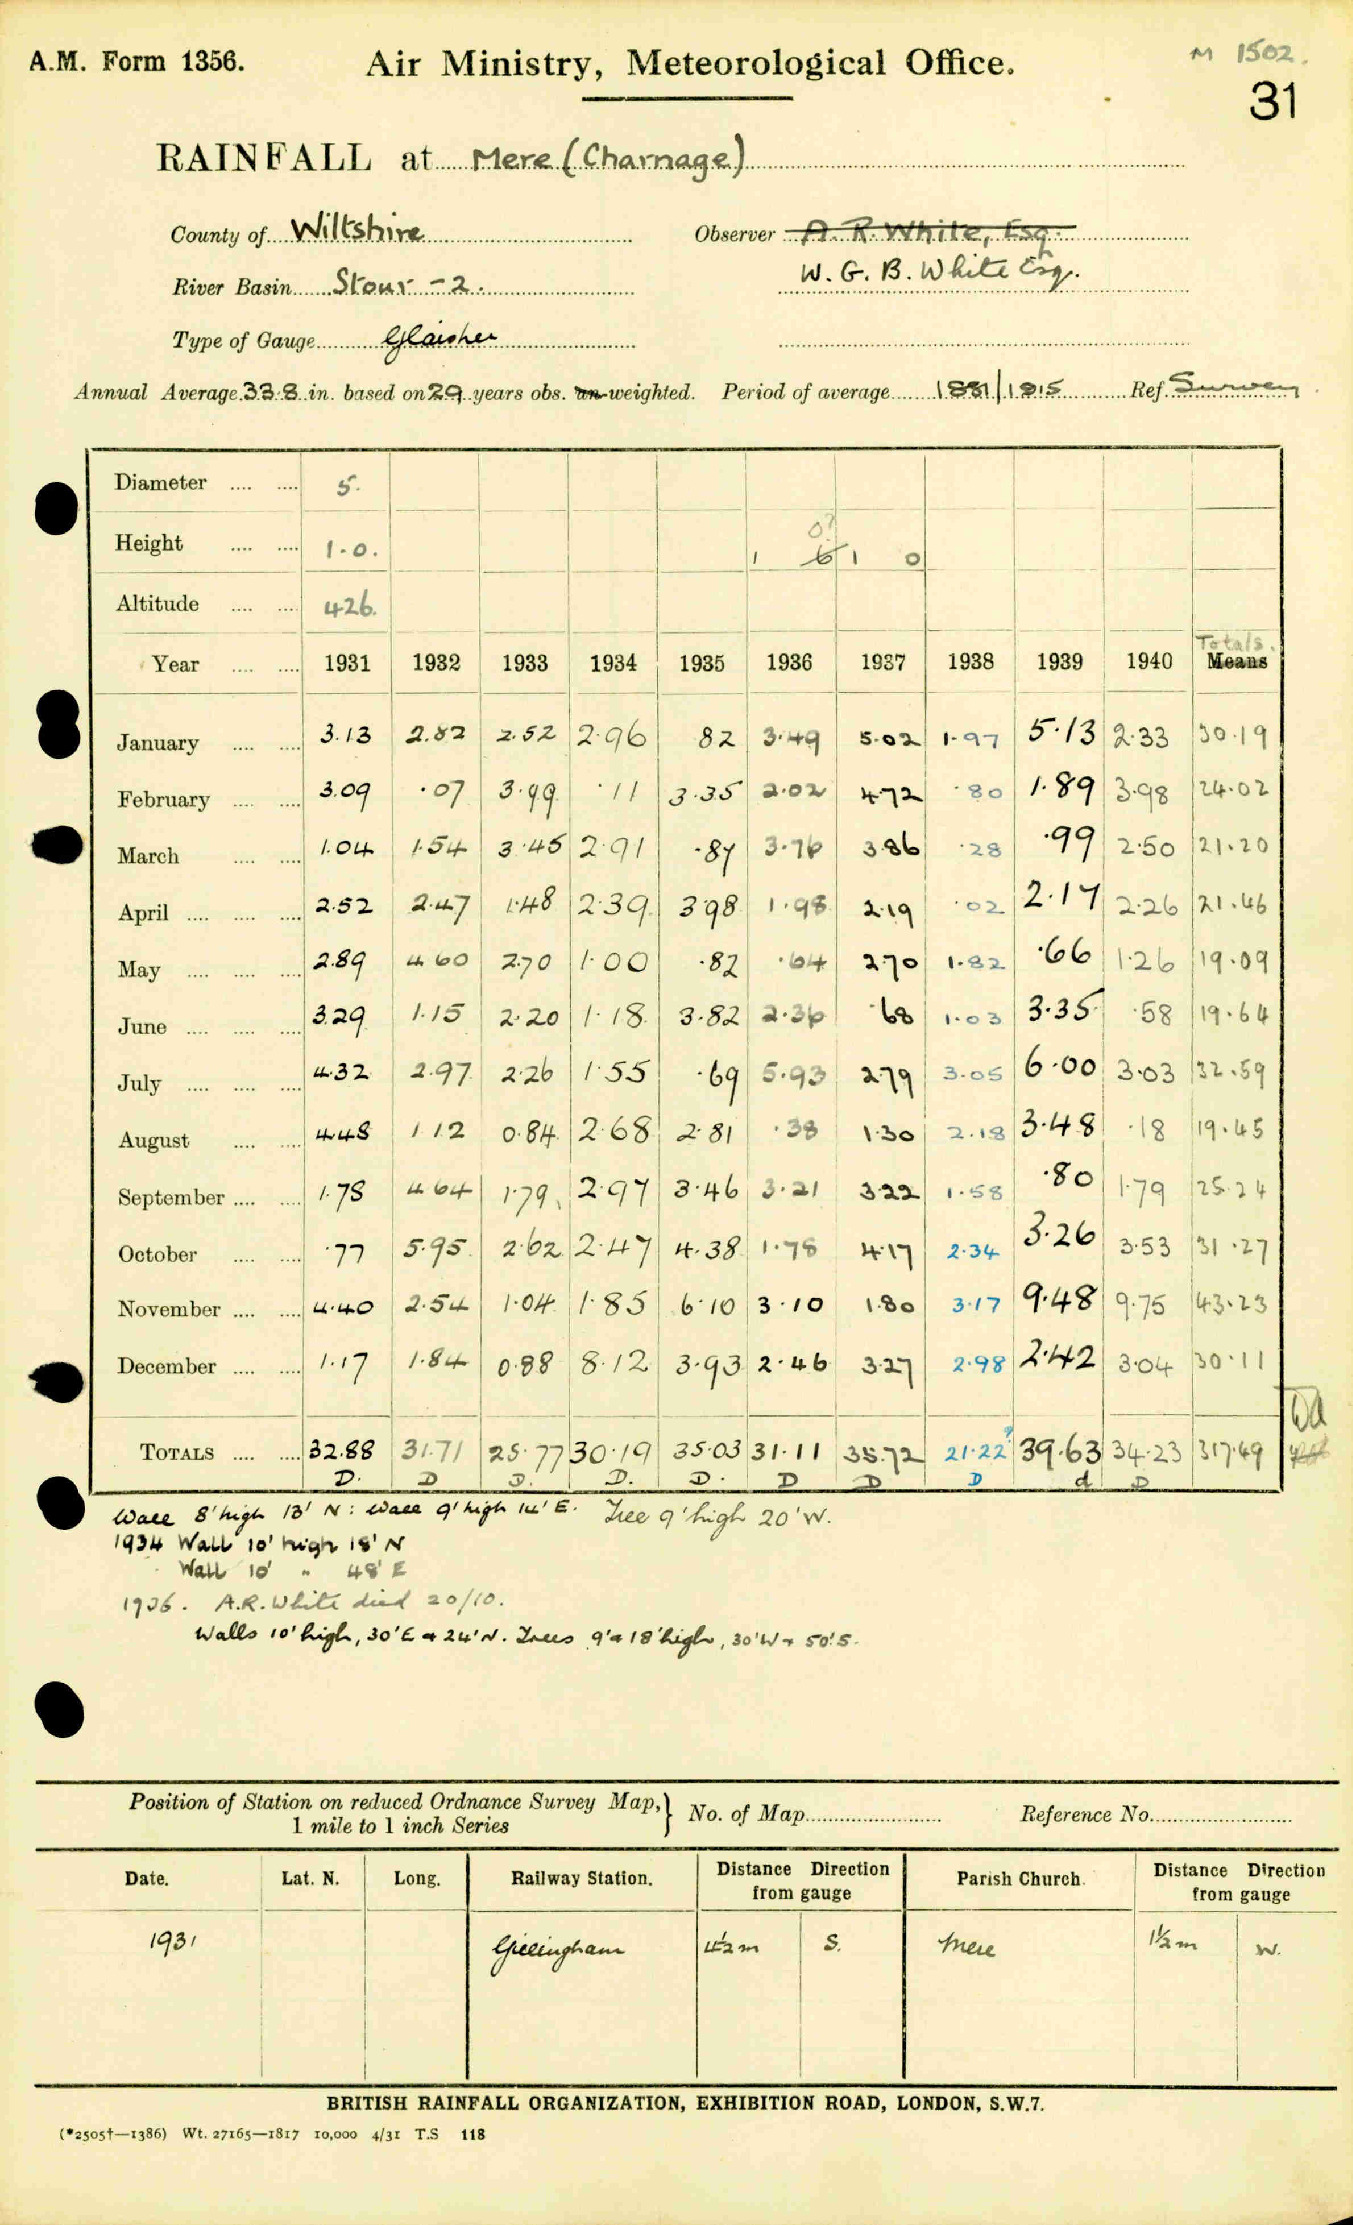 A.M. Form 1356. Air Ministry, Meteorological Office. M 1502.
31
RAINFALL at Mere (Charnage)
County of Wiltshire Observer A. R. White, Esq.
W. G. B. White Esq.
River Basin Stour - 2.
Type of Gauge Glaisher
Annual Average 33.8 in. based on 29 years obs. un-weighted. Period of average 1881/1915 Ref. Survey
Diameter 5.
0?
Height 1.0. 1 6 1 0
Altitude 426.
Totals.
Year 1931 1932 1933 1934 1935 1936 1937 1938 1939 1940 Means
January 3.13 2.82 2.52 2.96 82 3.49 5.02 1.97 5.13 2.33 30.19
February 3.09 .07 3.99 .11 3.35 2.02 4.72 .80 1.89 3.98 24.02
March 1.04 1.54 3.45 2.91 .87 3.76 3.86 .28 .99 2.50 21.20
April 2.52 2.47 1.48 2.39 3.98 1.98 2.19 .02 2.17 2.26 21.46
May 2.89 4.60 2.70 1.00 .82 .64 2.70 1.82 .66 1.26 19.09
June 3.29 1.15 2.20 1.18 3.82 2.36 .68 1.03 3.35 .58 19.64
July 4.32 2.97 2.26 1.55 .69 5.93 2.79 3.05 6.00 3.03 32.59
August 4.48 1.12 0.84 2.68 2.81 .38 1.30 2.18 3.48 .18 19.45
September 1.78 4.64 1.79 2.97 3.46 3.21 3.22 1.58 .80 1.79 25.24
October .77 5.95 2.62 2.47 4.38 1.78 4.17 2.34 3.26 3.53 31.27
November 4.40 2.54 1.04 1.85 6.10 3.10 1.80 3.17 9.48 9.75 43.23
December 1.17 1.84 0.88 8.12 3.93 2.46 3.27 2.98 2.42 3.04 30.11
TOTALS 32.88 31.71 25.77 30.19 35.03 31.11 35.72 21.22? 39.63 34.23 317.49
D. D D. D. D. D D D d D
Wall 8' high 13' N: Wall 9' high 14' E. Tree 9' high 20' W.
1934 Wall 10' high 18' N
Wall 10' " 48' E
1936. A.R. White died 20/10.
Walls 10' high, 30' E + 24' N. Trees 9' + 18' high, 30' W + 50' S.
Position of Station on reduced Ordnance Survey Map,} No. of Map Reference No.
1 mile to 1 inch Series
Date. Lat. N. Long. Railway Station. Distance Direction from gauge Parish Church. Distance Direction from gauge
1931 Gillingham 4½ m S. Mere 1½ m W.
BRITISH RAINFALL ORGANIZATION, EXHIBITION ROAD, LONDON, S.W.7.
(*2505†—1386) Wt. 27165—1817 10,000 4/31 T.S 118